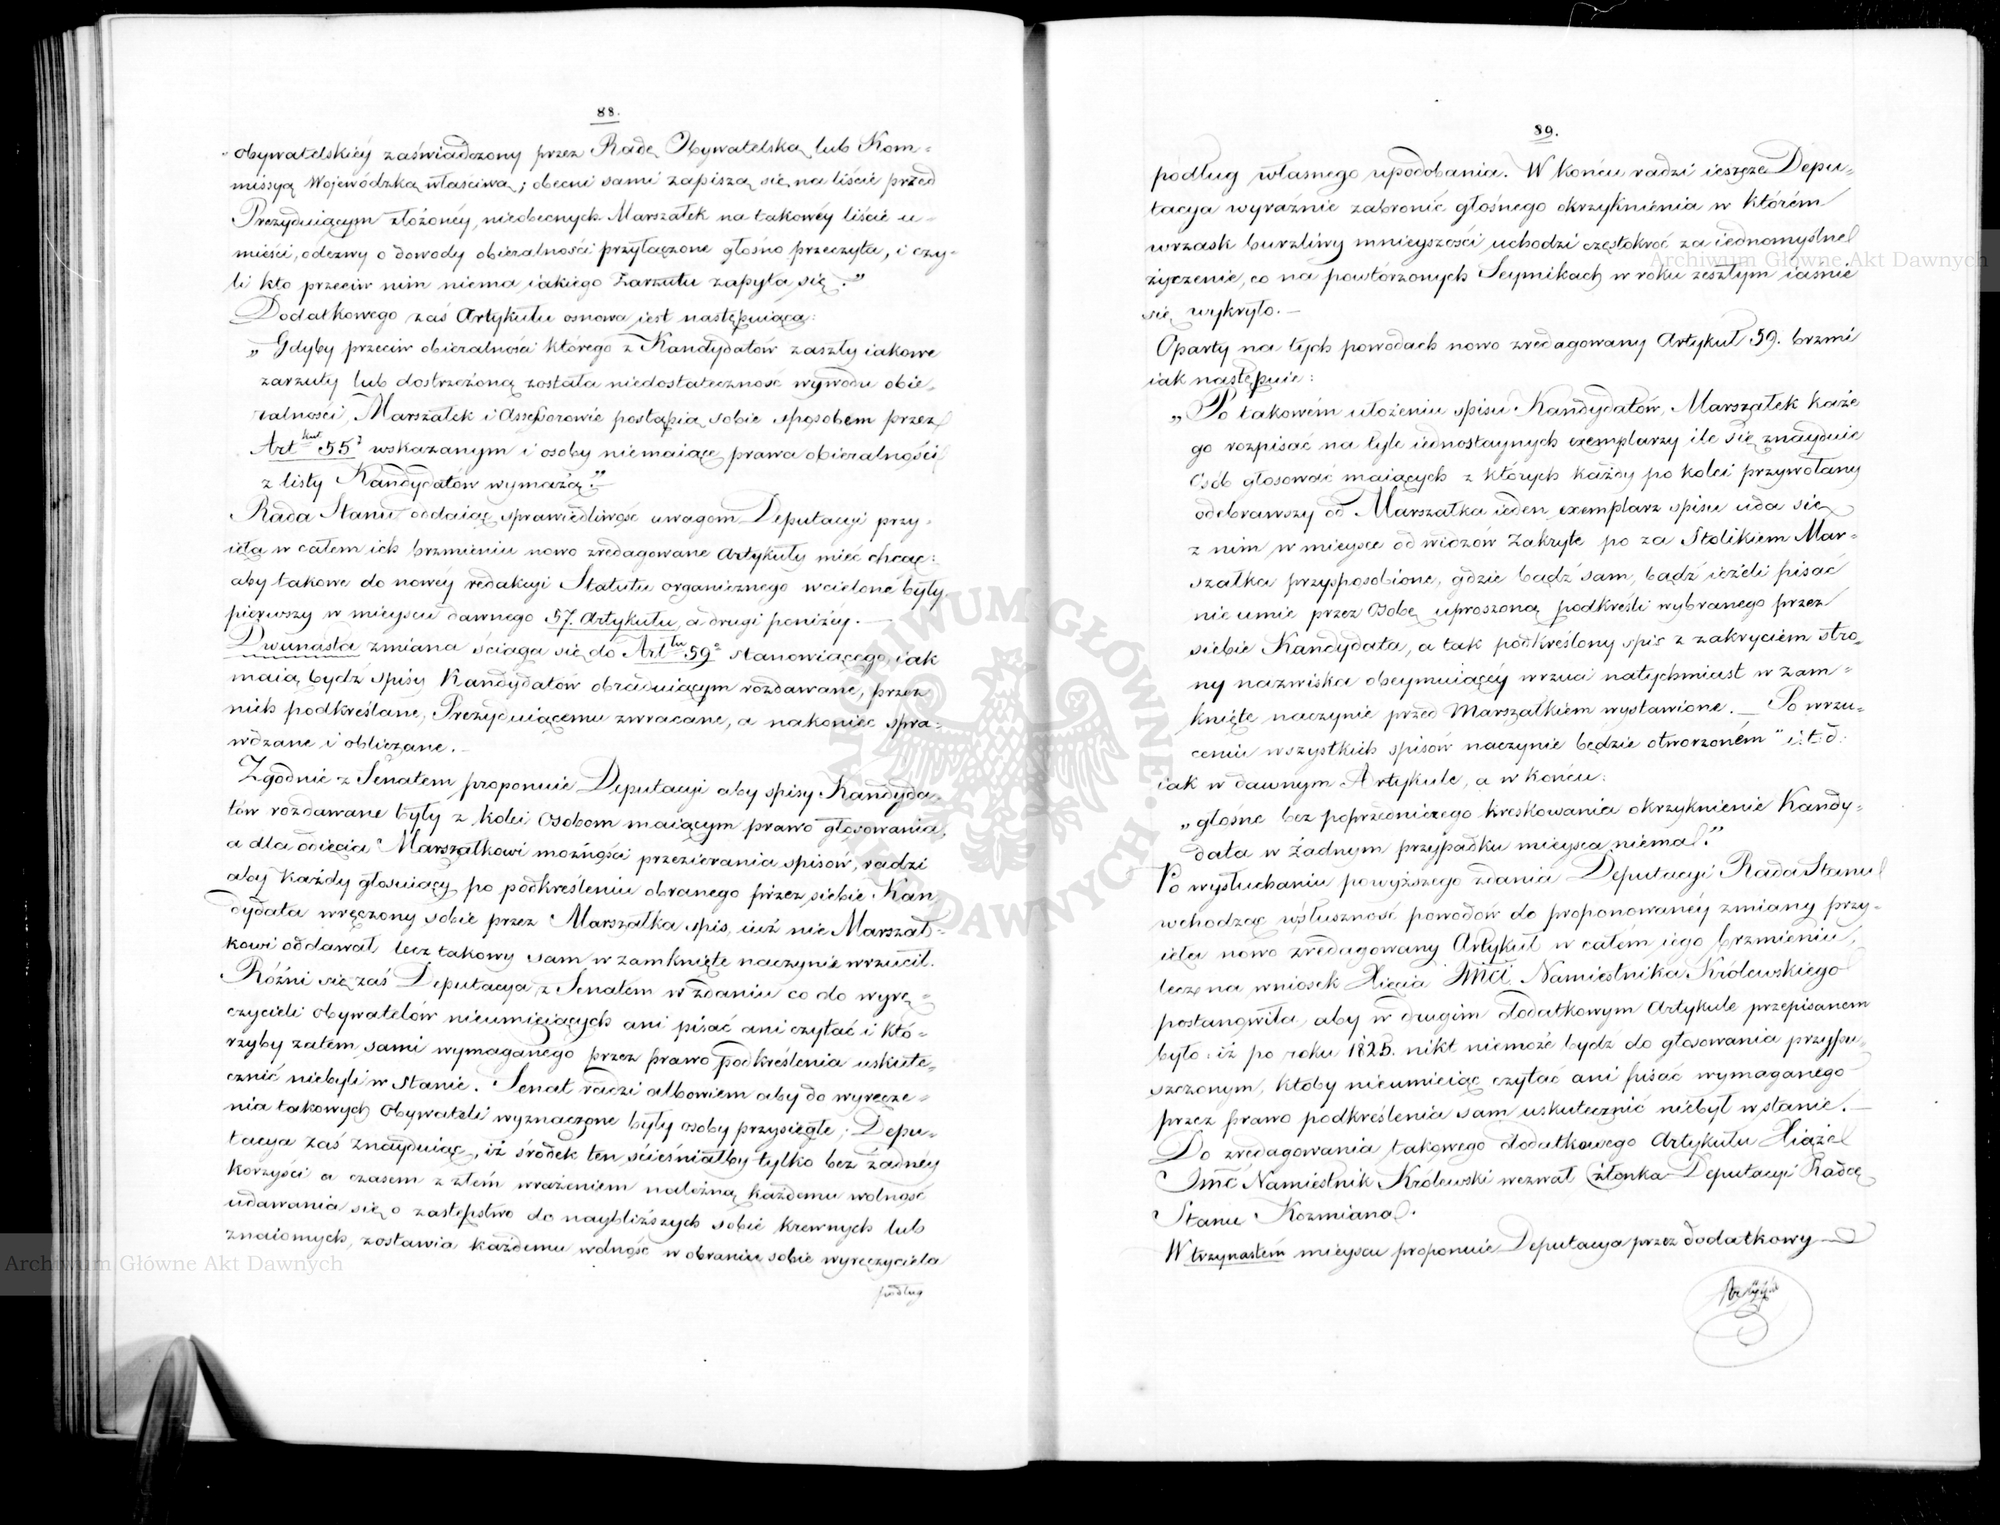 88.
„obywatelskiéy zaświadczony przez Radę Obywatelską lub Kom-
missyą Wojewódzką właściwą; obecni sami zapiszą się na liście przed
Prezyduiącym złożonéy, nieobecnych Marszałek na takowéy liście u-
mieści, odezwy o dowody obieralności przyłączone głośno przeczyta, i czy-
li kto przeciw nim niema iakiego Zarzutu zapyta się.”
Dodatkowego zaś Artykułu osnowa iest następuiąca:
„Gdyby przeciw obieralności którego z Kandydatów zaszły iakowe
zarzuty lub dostrzeżoną została niedostateczność wywodu obie-
ralności, Marszałek i Assessorowie postąpią sobie sposobem przez
Art kuł 55 wskazanym i osoby niemaiące prawa obieralności
z listy Kandydatów wymażą.”—
Rada Stanu oddaiąc sprawiedliwość uwagom Deputacyi przy-
ięła w całem ich brzmieniu nowo zredagowane Artykuły mieć chcąc:
aby takowe do nowéy redakcyi Statutu organicznego wcielone były
pierwszy w mieyscu dawnego 57. Artykułu, a drugi poniżéy.—
Dwunasta zmiana ściąga się do Art łu 59º stanowiącego, iak
maią bydź spisy Kandydatów obraduiącym rozdawane, przez
nich podkreślane, Prezyduiącemu zwracane, a nakoniec spra-
wdzane i obliczane.—
Zgodnie z Senatem proponuie Deputacyi aby spisy Kandyda-
tów rozdawane były z kolei Osobom maiącym prawo głosowania,
a dla odięcia Marszałkowi możności przezierania spisów, radzi
aby każdy głosuiący po podkreśleniu obranego przez siebie Kan
dydata wręczony sobie przez Marszałka spis, iuż nie Marszał-
kowi oddawał lecz takowy sam w zamknięte naczynie wrzucił.
Różni się zaś Deputacya z Senatem w zdaniu co do wyrę-
czycieli obywatelów nieumieiących ani pisać ani czytać i któ-
rzyby zatem sami wymaganego przez prawo podkreślenia uskute-
cznić niebyli w stanie. Senat radzi albowiem aby do wyręcze-
nia takowych Obywateli wyznaczone były osoby przysięgłe; Depu-
tacya zaś znayduiąc, iż środek ten ścieśniałby tylko bez żadnéy
korzyści a czasem z złém wrażeniem należną każdemu wolność
udawania się o zastępstwo do naybliższych sobie krewnych lub
znaiomych, zostawia każdemu wolność w obraniu sobie wyręczyciela
podług
89.
podług własnego upodobania. W końcu radzi ieszcze Depu-
tacya wyraźnie zabronić głośnego okrzyknienia w którém
wrzask burzliwy mnieyszości uchodzi częstokroć za iednomyślne
życzenie, co na powtórzonych Seymikach w roku zeszłym iaśnie
się wykryło.—
Oparty na tych powodach nowo zredagowany Artykuł 59. brzmi
iak następuie:
„Po takowém ułożeniu spisu Kandydatów, Marszałek każe
go rozpisać na tyle iednostaynych exemplarzy ile się znayduie
Osób głosować maiących z których każdy po kolei przywołany
odebrawszy od Marszałka ieden exemplarz spisu uda się
z nim w mieysce od widzów zakryte po za Stolikiem Mar-
szałka przysposobione, gdzie bądź sam, bądź ieżeli pisać
nie umie przez Osobę uproszoną podkreśli wybranego przez
siebie Kandydata, a tak podkreślony spis z zakryciem stro-
ny nazwiska obeymuiącéy wrzuci natychmiast w zam-
knięte naczynie przed Marszałkiem wystawione.— Po wrzu-
ceniu wszystkich spisów naczynie będzie otworzoném” i.t.d.
iak w dawnym Artykule, a w końcu:
„głośne bez poprzedniczego kreskowania okrzyknienie Kandy-
data w żadnym przypadku mieysca niema.”
Po wysłuchaniu powyższego zdania Deputacyi Rada Stanu
wchodząc w słuszność powodów do proponowanéy zmiany przy-
ięła nowo zredagowany Artykuł w całém iego brzmieniu,
lecz na wniosek Xięcia Jmci Namiestnika Królewskiego
postanowiła, aby w drugim dodatkowym Artykule przepisanem
było: iż po roku 1825. nikt niemoże bydź do głosowania przypu-
szczonym, któby nieumieiąc czytać ani pisać wymaganego
przez prawo podkreślenia sam uskutecznić niebył w stanie.—
Do zredagowania takowego dodatkowego Artykułu Xiąże
Jmć Namiestnik Królewski wezwał Członka Deputacyi Radcę
Stanu Kozmiana.
W trzynastém mieyscu proponuie Deputacya przez dodatkowy
Artykuł
Archiwum Główne Akt Dawnych
Archiwum Główne Akt Dawnych
ARCHIWUM GŁÓWNE AKT DAWNYCH